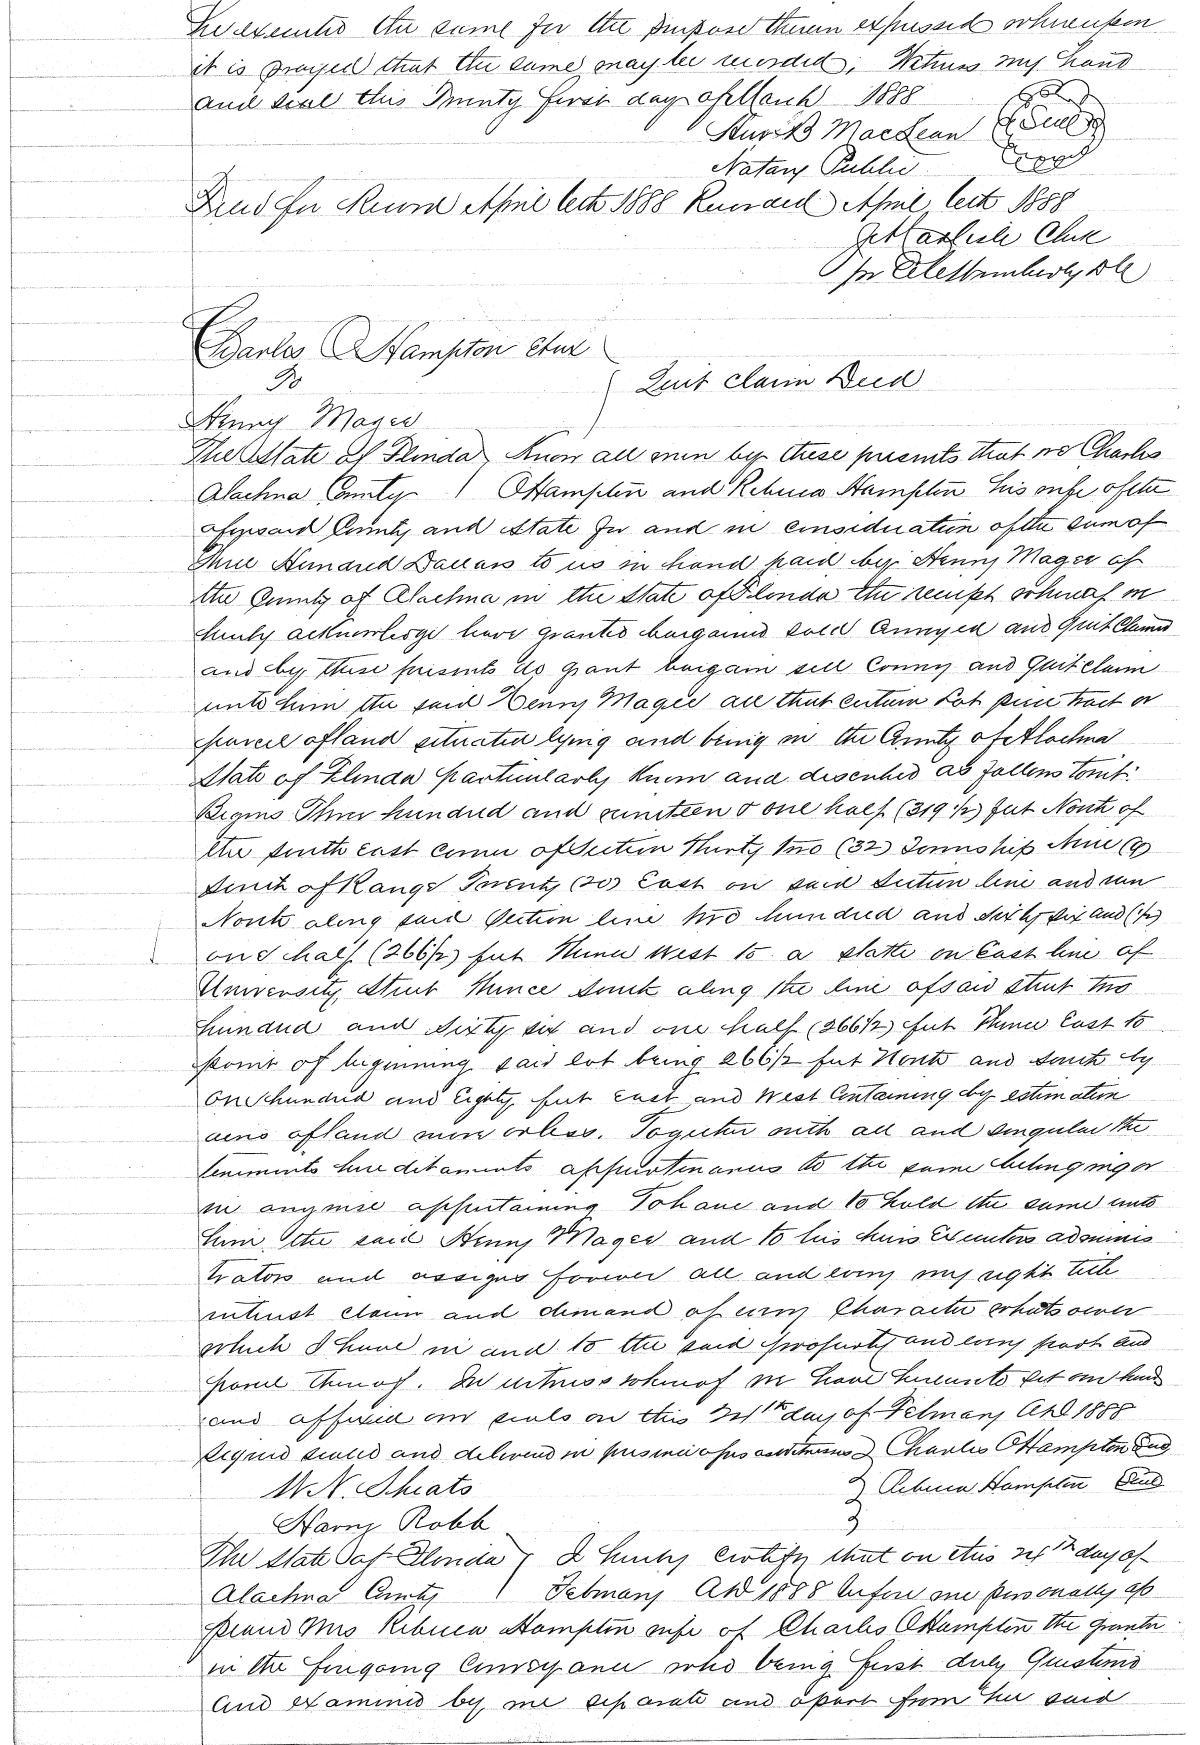 he executed the same for the purpose therein expressed whereupon
it is prayed that the same may be recorded. Witness my hand
and seal this Twenty first day of March 1888
MacLean (Seal)
Notary Public
Filed for Record April 6th 1888 Recorded April 6th 1888
Clerk
pr DC
Charles O Hampton etux
To
Quit Claim Deed
Henry Magee
The State of Florida Know all men by these presents that we Charles
Alachua County O Hampton and Rebecca Hampton his wife of the
aforesaid County and State for and in consideration of the sum of
Three Hundred Dollars to us in hand paid by Henry Magee of
the County of Alachua in the State of Florida the receipt whereof we
hereby acknowledge have granted bargained sold Conveyed and Quit Claimed
and by these presents do grant bargain sell Convey and Quit claim
unto him the said Henry Magee all that certain Lot piece tract or
parcel of land situated lying and being in the County of Alachua
State of Florida particularly known and described as follows towit:
Begins Three hundred and nineteen & one half (319 1/2) feet North of
the south east corner of Section Thirty two (32) Township Nine (9)
South of Range Twenty (20) East on said Section line and run
North along said Section line two hundred and sixty six and (1/2)
one half (266 1/2) feet Thence West to a stake on East line of
University Street Thence South along the line of said street two
hundred and sixty six and one half (266 1/2) feet Thence East to
point of beginning said lot being 266 1/2 feet North and South by
One hundred and Eighty feet East and West Containing by estimation
acres of land more or less. Together with all and singular the
tenements hereditaments appurtenances to the same belonging or
in anywise appertaining To have and to hold the same unto
him the said Henry Magee and to his heirs Executors adminis
trators and assigns forever all and every my right title
interest claim and demand of every Character whatsoever
which I have in and to the said property and every part and
parcel thereof. In witness whereof we have hereunto set our hands
and affixed our seals on this 24th day of February AD 1888
Signed sealed and delivered in presence of us as witnesses Charles O Hampton Seal
W. N. Sheats Rebecca Hampton Seal
Harry Robb
The State of Florida I hereby certify that on this 24th day of
Alachua County February AD 1888 before me personally ap
peared Mrs Rebecca Hampton wife of Charles O Hampton the grantor
in the foregoing Conveyance who being first duly Questioned
and examined by me separate and apart from her said